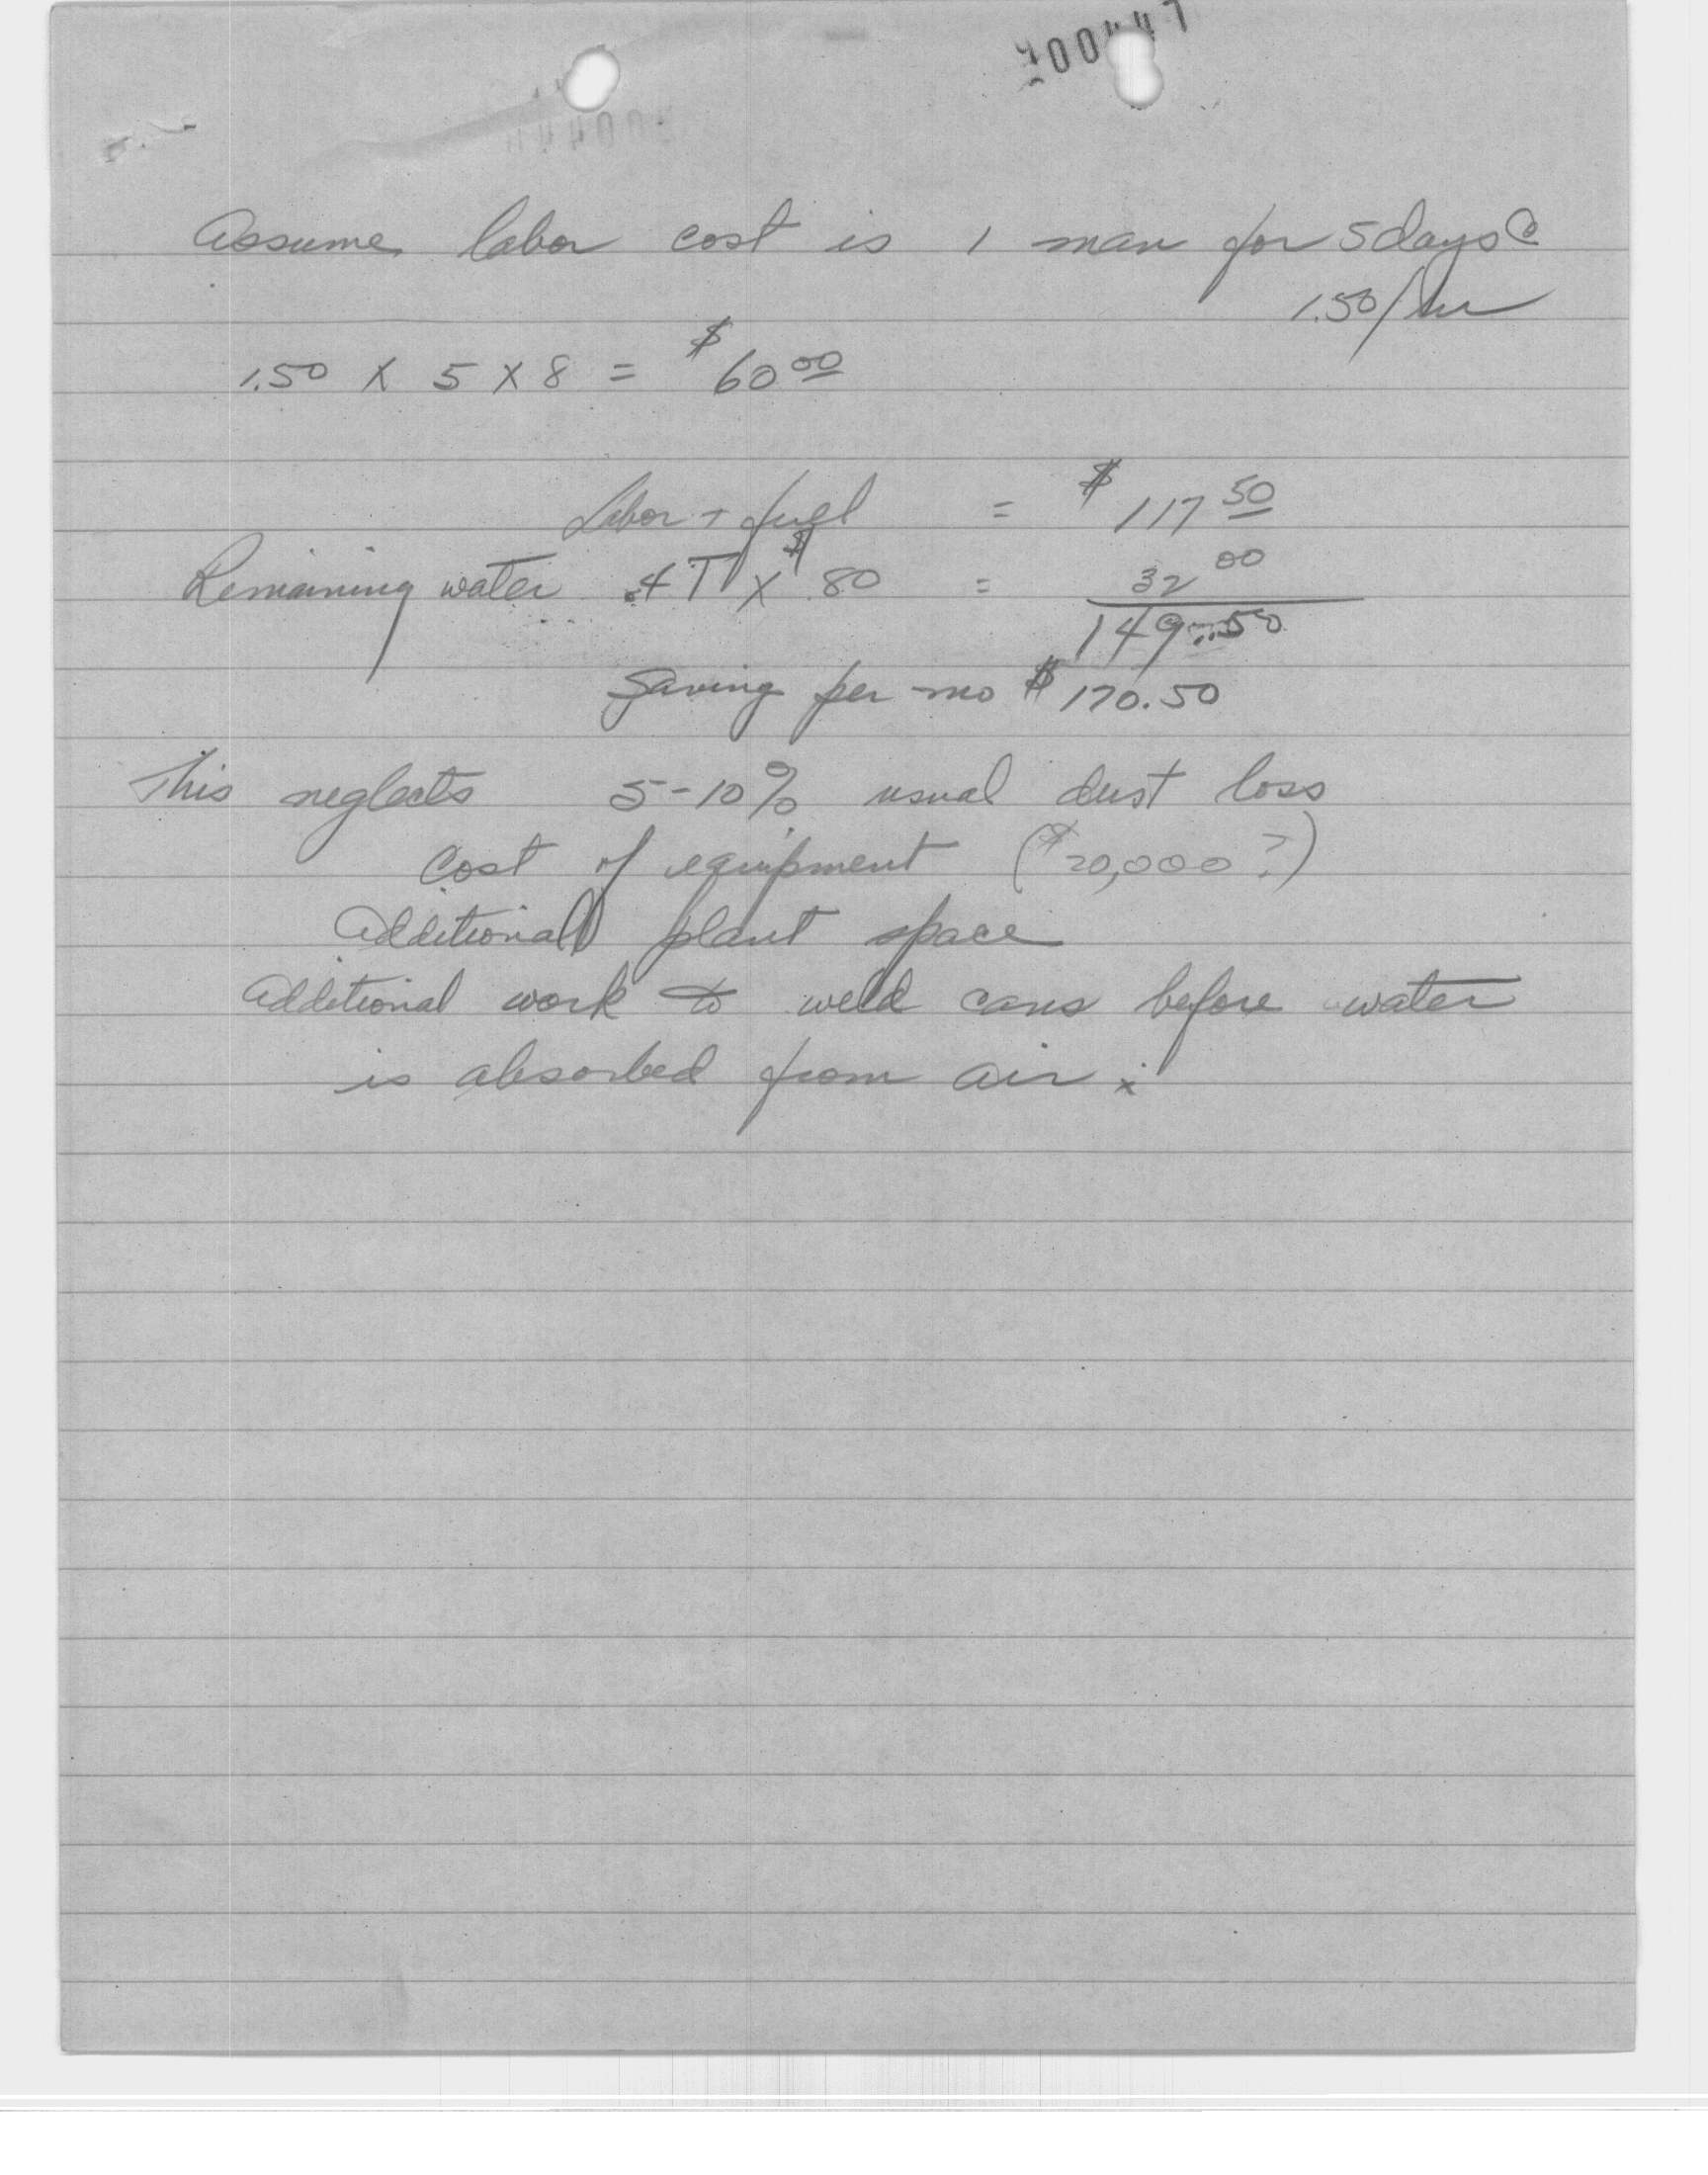 Assume labor cost is 1 man for 5 days @
1.50/hr
1.50 X 5 X 8 = $60 00
Labor + fuel = $117 50
Remaining water .4 T X $80 = 32 00
149.50
Saving per mo $170.50
This neglects 5-10% usual dust loss
Cost of equipment ($20,000?)
Additional plant space
Additional work to weld cans before water
is absorbed from air.